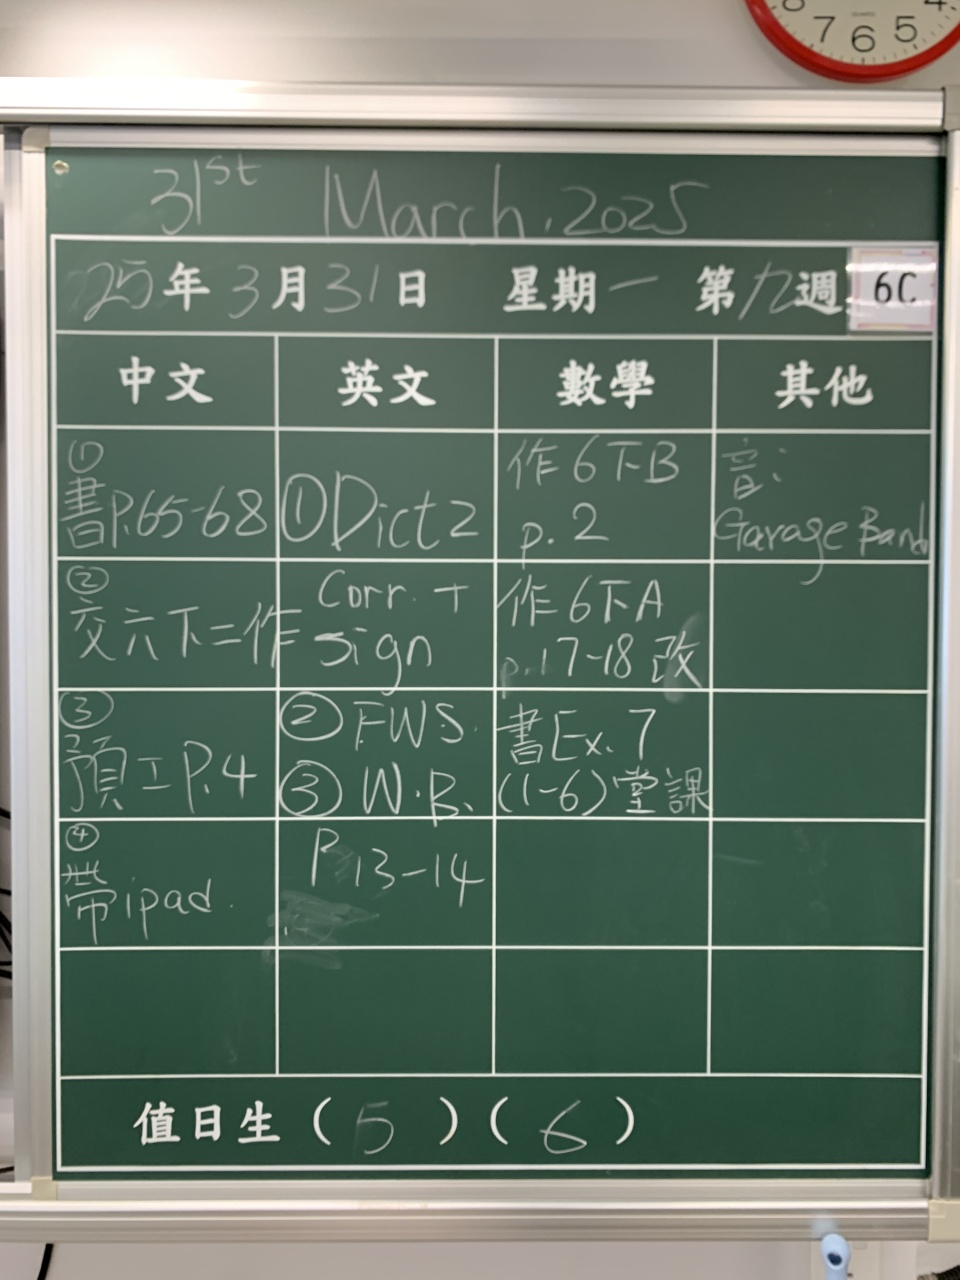 8 7 6 5 4
31st March, 2025
25年3月31日 星期一 第九週 6C
中文 英文 數學 其他
①
書P.65-68
①Dict 2
作6下B
p. 2
音:
Garage Band
②
交六下二作
Corr. +
sign
作6下A
p.17-18 改
③
預工P.4
② F.W.S.
③ W.B.
書Ex. 7
(1-6)堂課
④
帶ipad.
P 13-14
值日生(5)(6)